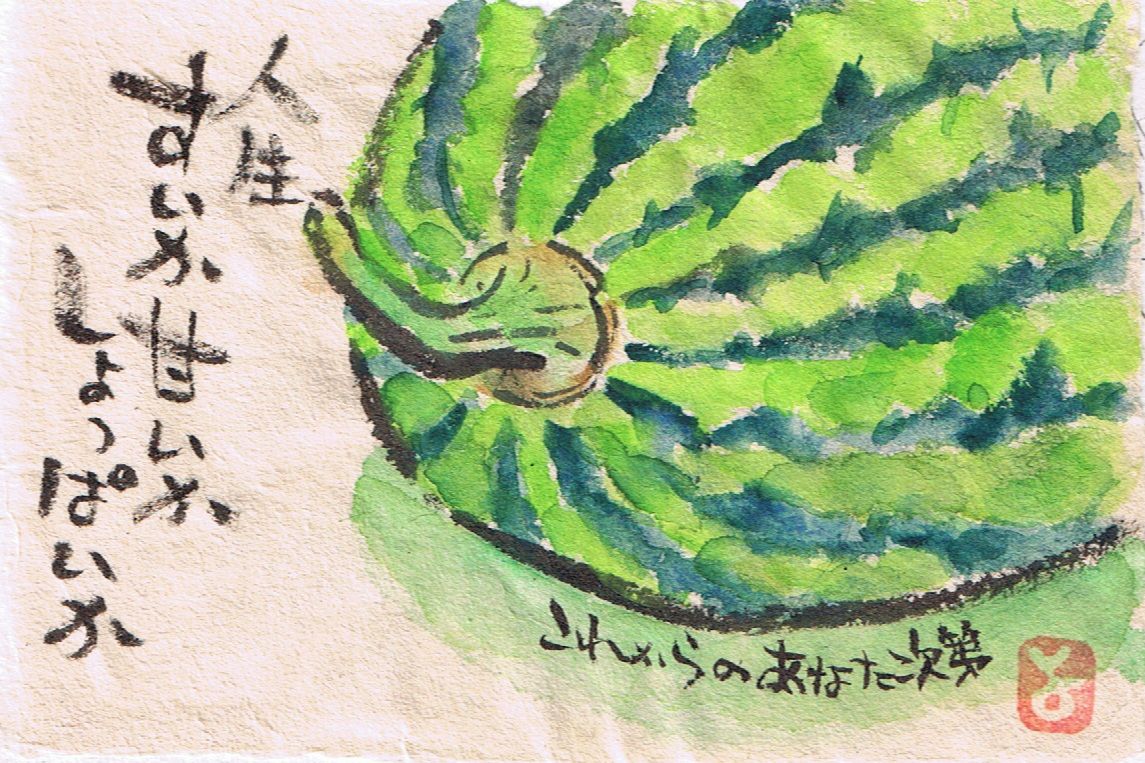 人生、
すいか甘いか
しょっぱいか
これからのあなた次第
とよ